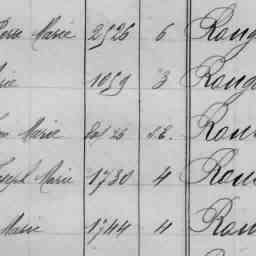 Marie 2526 6 Roug
1059 3 Roug
Marie 26 Rou
Joseph Marie 1730 4 Rou
Marie 1744 4 Rou